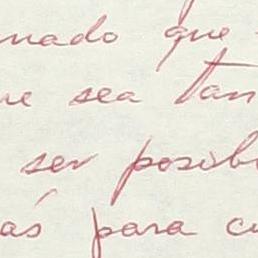 nado que
ue sea tan
ser posib
as para cu